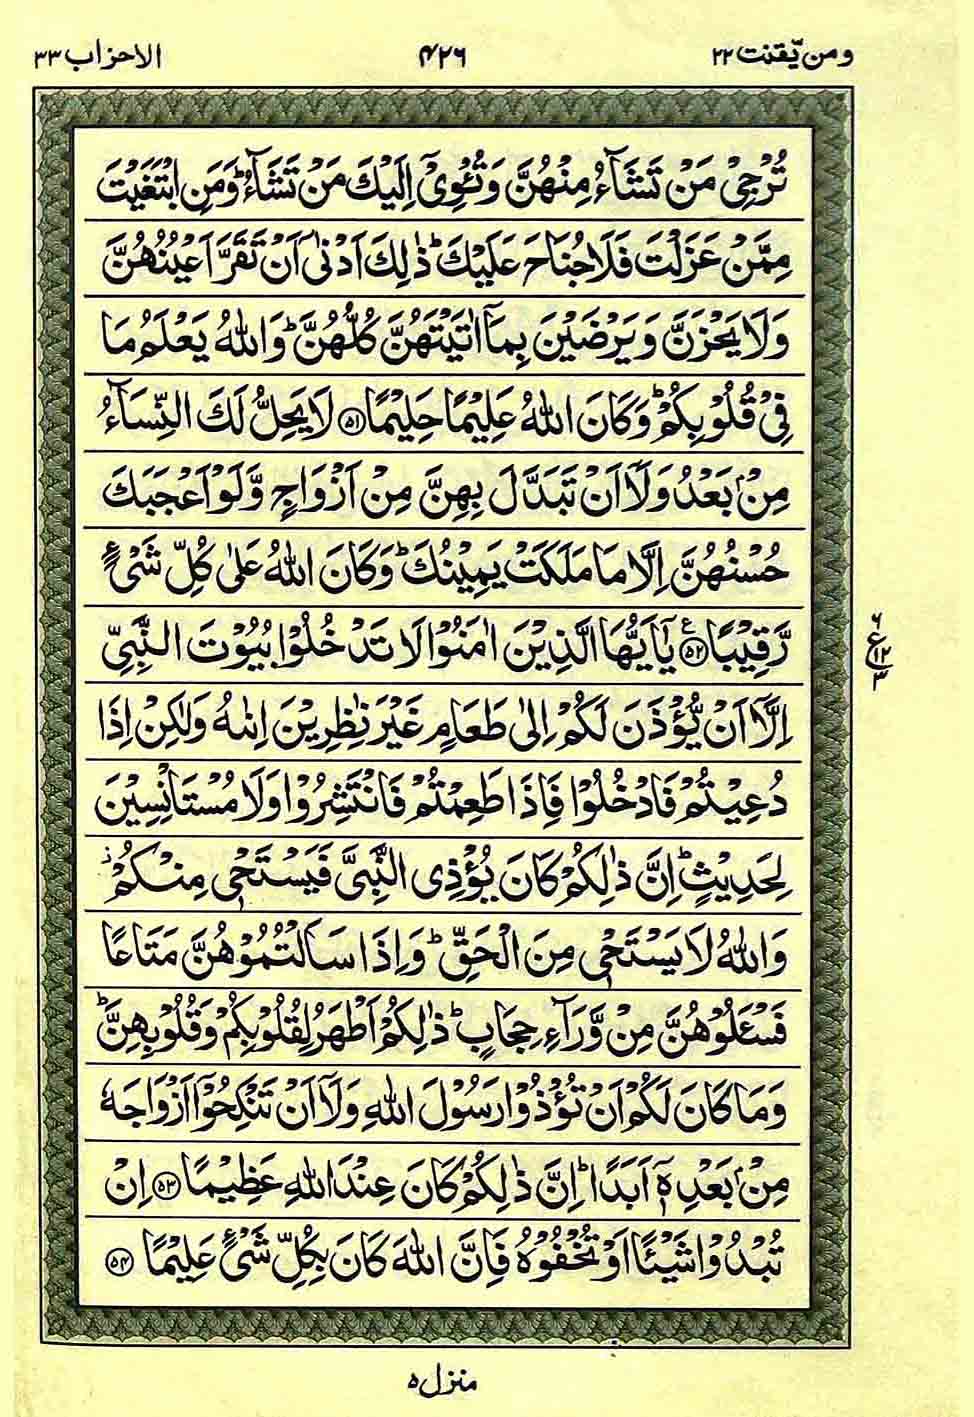 ومن یّقنت ۲۲
۴۲۶
الاحزاب ۳۳
تُرْجِیْ مَنْ تَشَآءُ مِنْهُنَّ وَتُـْٔوِیْۤ اِلَیْكَ مَنْ تَشَآءُ ؕ وَمَنِ ابْتَغَیْتَ
مِمَّنْ عَزَلْتَ فَلَا جُنَاحَ عَلَیْكَ ؕ ذٰلِكَ اَدْنٰۤی اَنْ تَقَرَّ اَعْیُنُهُنَّ
وَلَا یَحْزَنَّ وَیَرْضَیْنَ بِمَاۤ اٰتَیْتَهُنَّ كُلُّهُنَّ ؕ وَاللّٰهُ یَعْلَمُ مَا
فِیْ قُلُوْبِكُمْ ؕ وَكَانَ اللّٰهُ عَلِیْمًا حَلِیْمًا ﴿۵۱﴾ لَا یَحِلُّ لَكَ النِّسَآءُ
مِنْۢ بَعْدُ وَلَاۤ اَنْ تَبَدَّلَ بِهِنَّ مِنْ اَزْوَاجٍ وَّلَوْ اَعْجَبَكَ
حُسْنُهُنَّ اِلَّا مَا مَلَكَتْ یَمِیْنُكَ ؕ وَكَانَ اللّٰهُ عَلٰی كُلِّ شَیْءٍ
رَّقِیْبًا ﴿۵۲﴾ ع یٰۤاَیُّهَا الَّذِیْنَ اٰمَنُوْا لَا تَدْخُلُوْا بُیُوْتَ النَّبِیِّ
اِلَّاۤ اَنْ یُّؤْذَنَ لَكُمْ اِلٰی طَعَامٍ غَیْرَ نٰظِرِیْنَ اِنٰىهُ وَلٰكِنْ اِذَا
دُعِیْتُمْ فَادْخُلُوْا فَاِذَا طَعِمْتُمْ فَانْتَشِرُوْا وَلَا مُسْتَاْنِسِیْنَ
لِحَدِیْثٍ ؕ اِنَّ ذٰلِكُمْ كَانَ یُؤْذِی النَّبِیَّ فَیَسْتَحْیٖ مِنْكُمْ ؗ
وَاللّٰهُ لَا یَسْتَحْیٖ مِنَ الْحَقِّ ؕ وَاِذَا سَاَلْتُمُوْهُنَّ مَتَاعًا
فَسْـَٔلُوْهُنَّ مِنْ وَّرَآءِ حِجَابٍ ؕ ذٰلِكُمْ اَطْهَرُ لِقُلُوْبِكُمْ وَقُلُوْبِهِنَّ ؕ
وَمَا كَانَ لَكُمْ اَنْ تُؤْذُوْا رَسُوْلَ اللّٰهِ وَلَاۤ اَنْ تَنْكِحُوْۤا اَزْوَاجَهٗ
مِنْۢ بَعْدِهٖۤ اَبَدًا ؕ اِنَّ ذٰلِكُمْ كَانَ عِنْدَ اللّٰهِ عَظِیْمًا ﴿۵۳﴾ اِنْ
تُبْدُوْا شَیْـًٔا اَوْ تُخْفُوْهُ فَاِنَّ اللّٰهَ كَانَ بِكُلِّ شَیْءٍ عَلِیْمًا ﴿۵۴﴾
۶
ع ۱۲
۳
منزل ۵